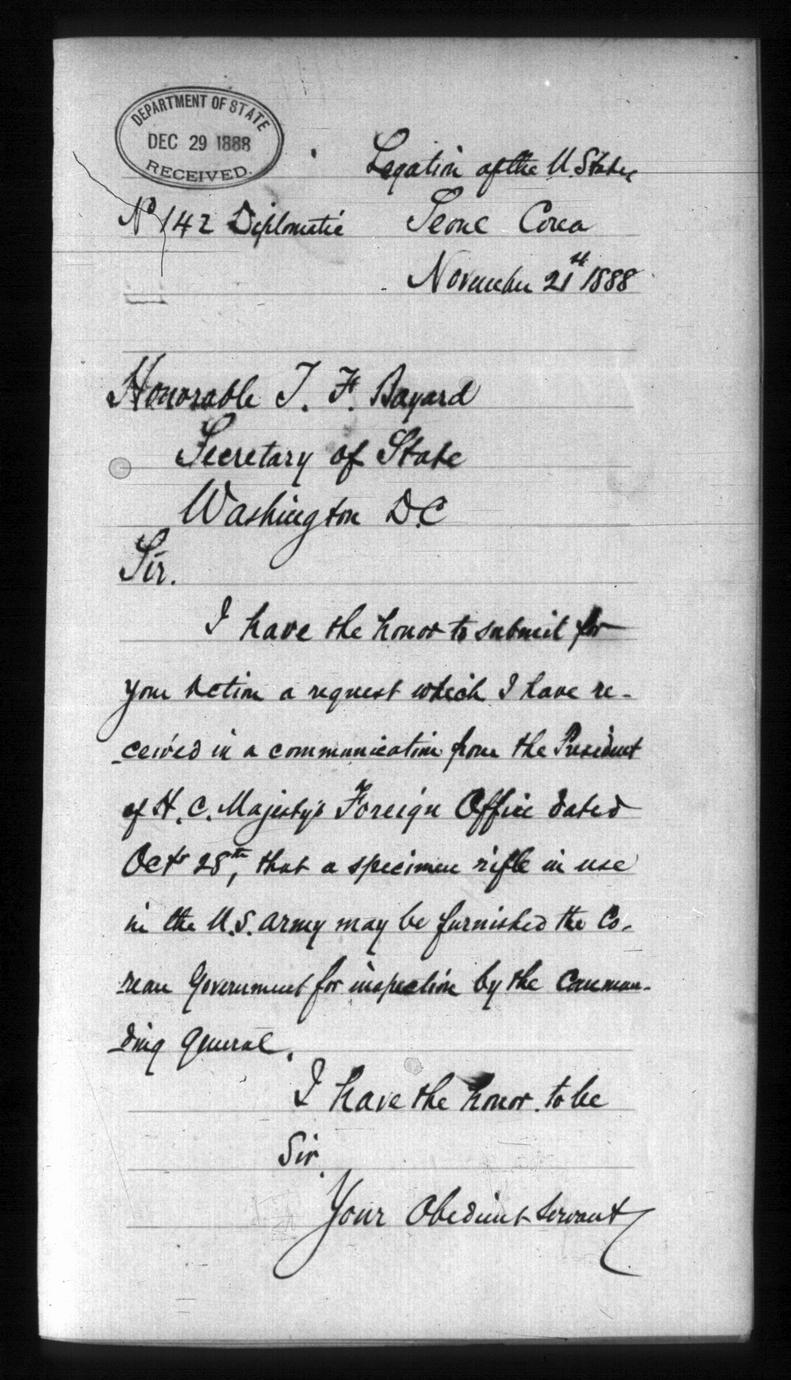 DEPARTMENT OF STATE
DEC 29 1888
RECEIVED.
Legation of the U. States
No 142 Diplomatic
Seoul Corea
November 21st 1888
Honorable T. F. Bayard
Secretary of State
Washington D.C
Sir.
I have the honor to submit for
your action a request which I have re-
ceived in a communication from the President
of H. C. Majesty's Foreign Office dated
Octr 28th, that a specimen rifle in use
in the U.S. Army may be furnished the Co-
rean Government for inspection by the Comman-
ding General.
I have the honor to be
Sir.
Your Obedient Servant